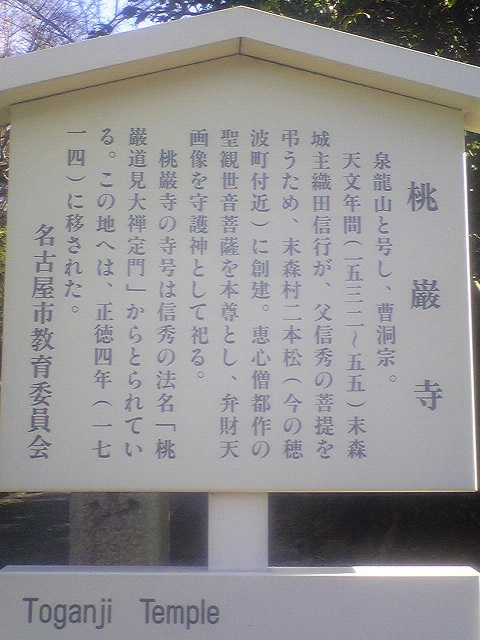 桃巌寺
泉龍山と号し、曹洞宗。
天文年間（一五三二～五五）末森
城主織田信行が、父信秀の菩提を
弔うため、末森村二本松（今の穂
波町付近）に創建。恵心僧都作の
聖観世音菩薩を本尊とし、弁財天
画像を守護神として祀る。
桃巌寺の寺号は信秀の法名「桃
巌道見大禅定門」からとられてい
る。この地へは、正徳四年（一七
一四）に移された。
名古屋市教育委員会
Toganji Temple